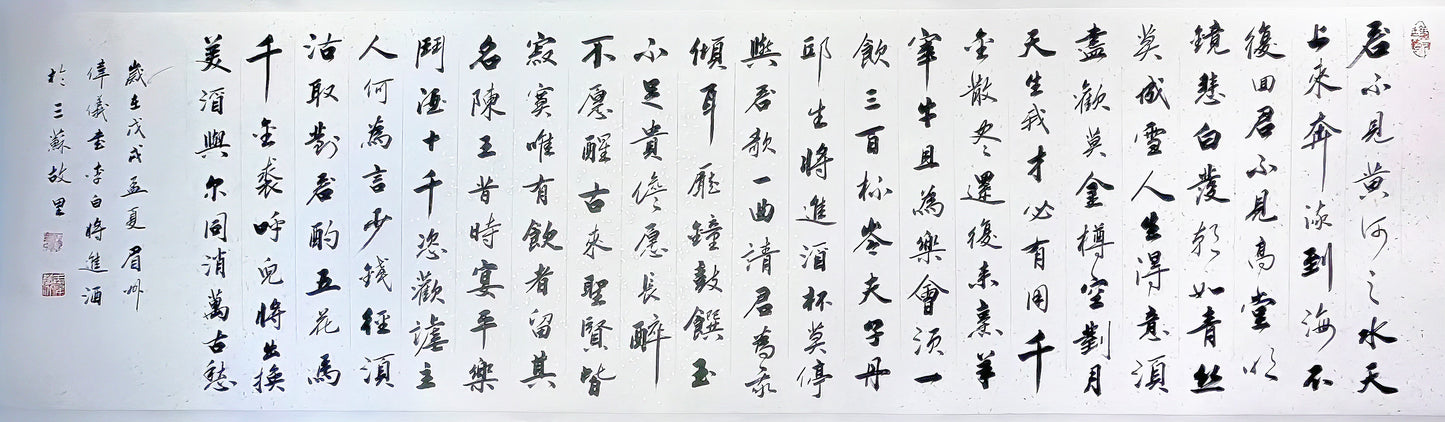 君不見黃河之水天
上來奔流到海不
復回君不見高堂明
鏡悲白發朝如青絲
莫成雪人生得意須
盡歡莫金樽空對月
天生我才必有用千
金散尽還復来烹羊
宰牛且為樂會須一
飲三百杯岑夫子丹
邱生將進酒杯莫停
與君歌一曲請君為我
傾耳聽鐘鼓饌玉
不足貴愿長醉
不愿醒古來聖賢皆
寂寞唯有飲者留其
名陳王昔時宴平樂
鬥酒十千恣歡謔主
人何為言少錢徑須
沽取對君酌五花馬
千金裘呼兒將出換
美酒與尔同消萬古愁
歲在戊戌孟夏眉州
偉儀書李白將進酒
於三蘇故里